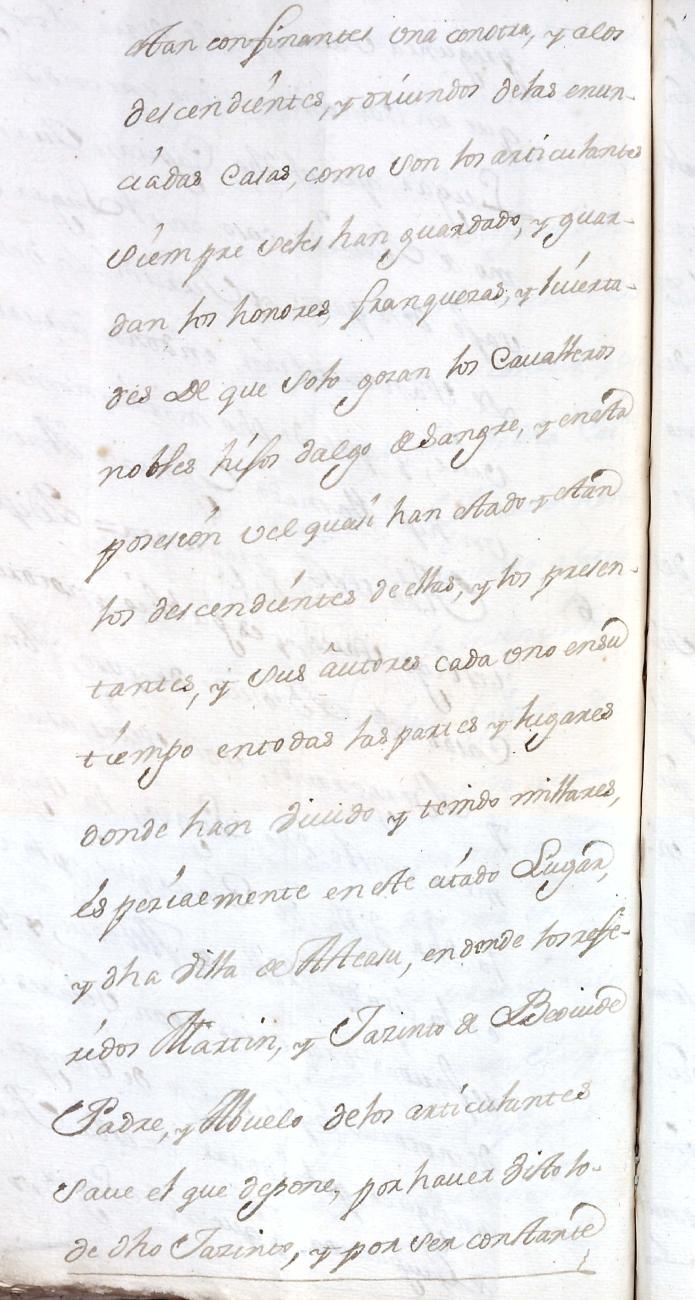 stan confinantes una conotra, y alos
descendiéntes, y oriundos delas enun-
ciádas Casas, como son los articulantes
siémpre seles han guardado, y guar-
dan los honores, franquezas, y livérta-
des de que solo gozan los Cavalleros
nobles hijos dalgo de Sangre, y enésta
posesión vel quasi han estado y están
los descendiéntes de ellas, y los presen-
tantes, y sus autores cada uno ensu
tiémpo entodas las partes y lugares
donde han vivido y tenido millares,
éspeziaemente en este citado Lugar,
y dha villa de Alleasu, en donde los refe-
ridos Martin, y Jazinto de Beovide
Padre, y Abuelo delos articulantes
save el que depone, por haver visto lo-
de dho Jazinto, y por ser constante